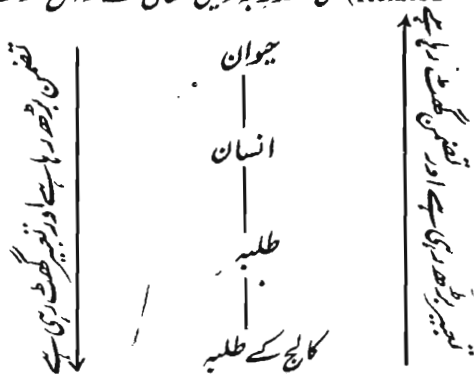 حیوان
انسان
طلبہ
کالج کے طلبہ
تعبیر بڑھ رہی ہے اور تضمن گھٹ رہا ہے
تضمن بڑھ رہا ہے اور تعبیر گھٹ رہی ہے